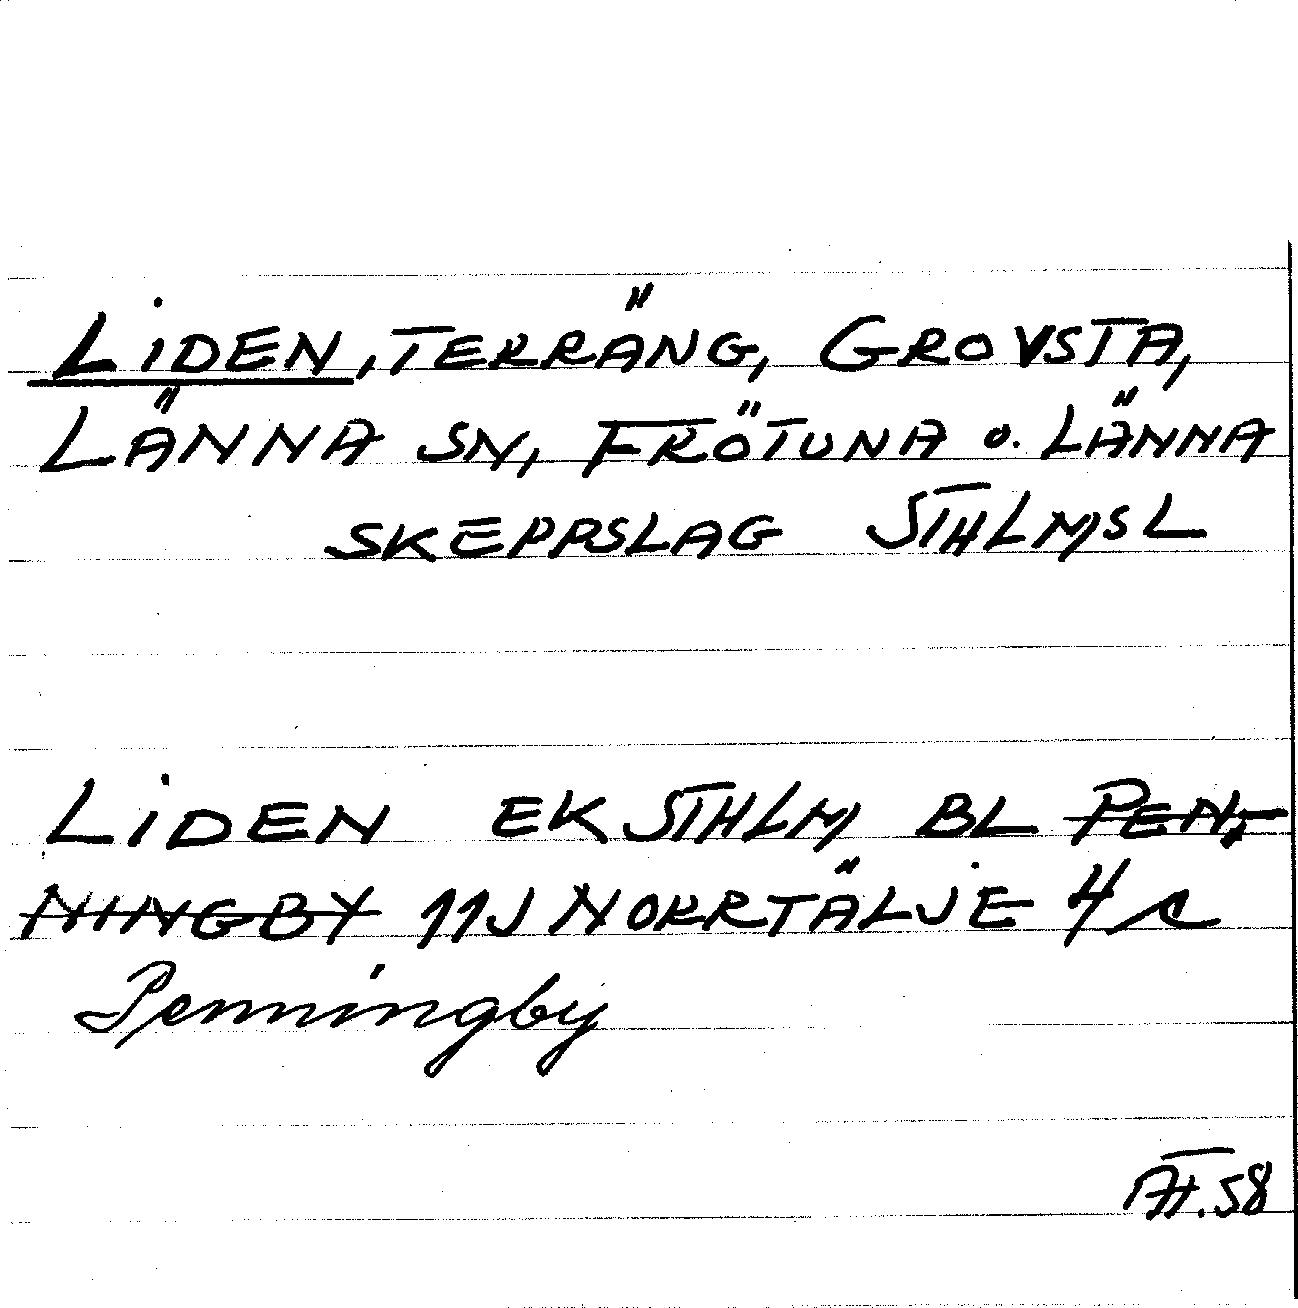 LiDEN, TERRÄNG, GROVSTA,
LÄNNA SN, FRÖTUNA o. LÄNNA
SKEPPSLAG STHLMSL
LiDEN EK STHLM BL PEN-
NINGBY 11J NORRTÄLJE 4c
Penningby
58